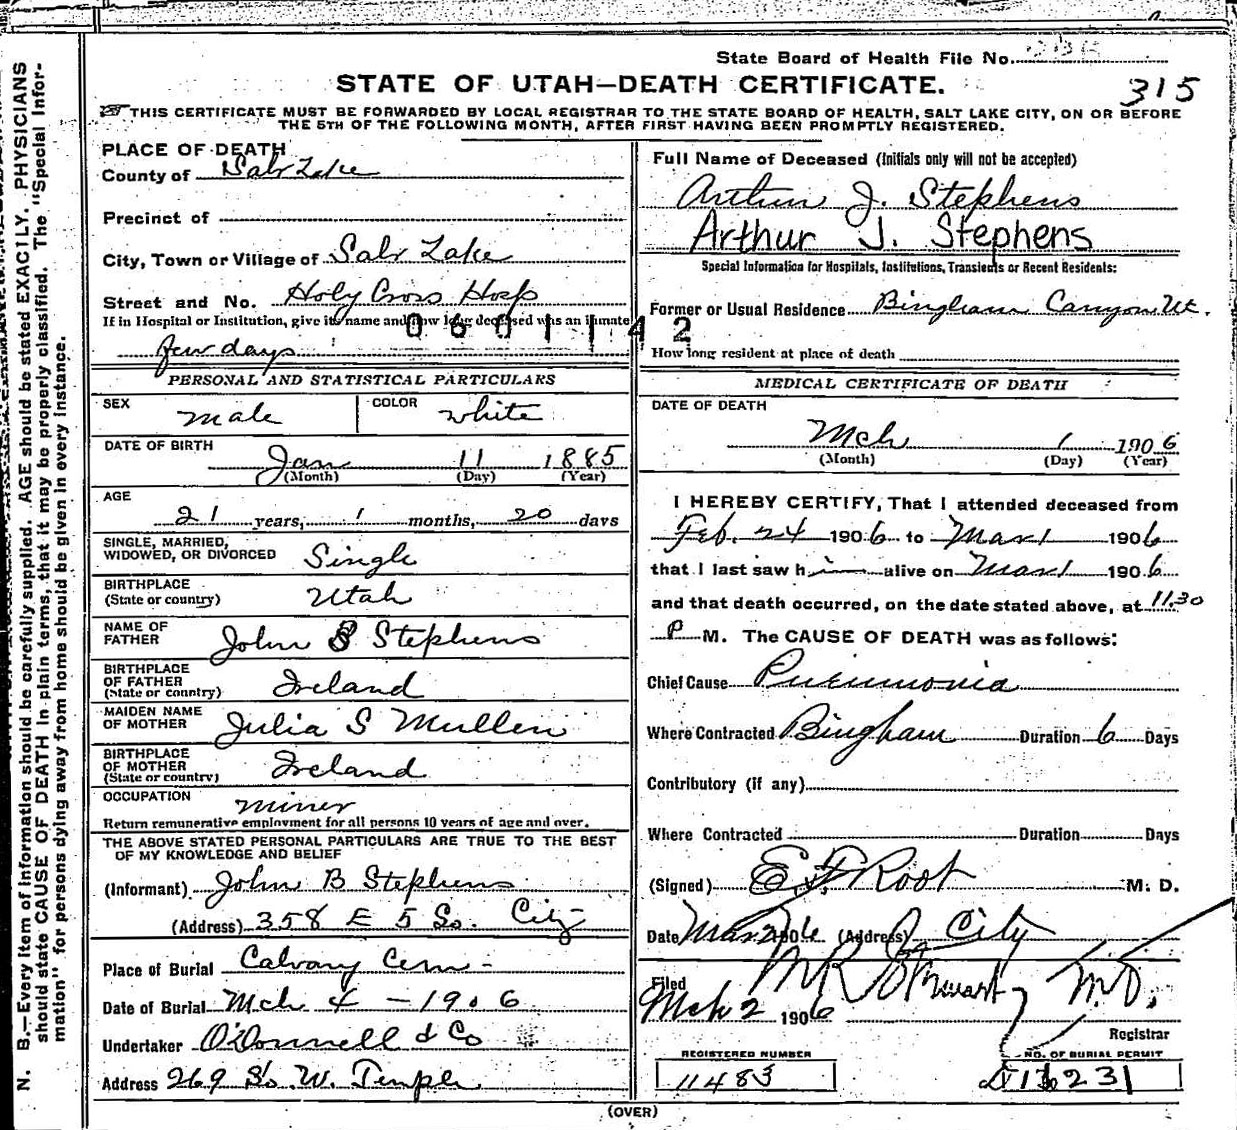 State Board of Health File No.
STATE OF UTAH—DEATH CERTIFICATE.
315
THIS CERTIFICATE MUST BE FORWARDED BY LOCAL REGISTRAR TO THE STATE BOARD OF HEALTH, SALT LAKE CITY, ON OR BEFORE
THE 5TH OF THE FOLLOWING MONTH, AFTER FIRST HAVING BEEN PROMPTLY REGISTERED.
N. B.—Every item of information should be carefully supplied. AGE should be stated EXACTLY. PHYSICIANS
should state CAUSE OF DEATH in plain terms, that it may be properly classified. The "Special Infor-
mation" for persons dying away from home should be given in every instance.
PLACE OF DEATH
County of Salt Lake
Precinct of
City, Town or Village of Salt Lake
Street and No. Holy Cross Hosp
If in Hospital or Institution, give its name and how long deceased was an inmate
few days
0601142
PERSONAL AND STATISTICAL PARTICULARS
SEX male COLOR white
DATE OF BIRTH
Jan 11 1885
(Month) (Day) (Year)
AGE
21 years, 1 months, 20 days
SINGLE, MARRIED,
WIDOWED, OR DIVORCED Single
BIRTHPLACE
(State or country) Utah
NAME OF
FATHER John B Stephens
BIRTHPLACE
OF FATHER
(State or country) Ireland
MAIDEN NAME
OF MOTHER Julia S Mullen
BIRTHPLACE
OF MOTHER
(State or country) Ireland
OCCUPATION miner
Return remunerative employment for all persons 10 years of age and over.
THE ABOVE STATED PERSONAL PARTICULARS ARE TRUE TO THE BEST
OF MY KNOWLEDGE AND BELIEF
(Informant) John B Stephens
(Address) 358 E 5 So. City
Place of Burial Calvary Cem-
Date of Burial Mch 4 - 1906
Undertaker O'Donnell & Co
Address 269 So. W. Temple
Full Name of Deceased (Initials only will not be accepted)
Arthur J. Stephens
Arthur J. Stephens
Special Information for Hospitals, Institutions, Transients or Recent Residents:
Former or Usual Residence Bingham Canyon Ut.
How long resident at place of death
MEDICAL CERTIFICATE OF DEATH
DATE OF DEATH
Mch 1 1906
(Month) (Day) (Year)
I HEREBY CERTIFY, That I attended deceased from
Feb. 24 1906 to Mar 1 1906
that I last saw him alive on Mar 1 1906
and that death occurred, on the date stated above, at 11.30
P M. The CAUSE OF DEATH was as follows:
Chief Cause Pneumonia
Where Contracted Bingham Duration 6 Days
Contributory (if any)
Where Contracted Duration Days
(Signed) E F Root M. D.
Date Mar 2 1906 (Address) City
Filed
Mch 2 1906 M.D.
Registrar
REGISTERED NUMBER
11483
NO. OF BURIAL PERMIT
(OVER)